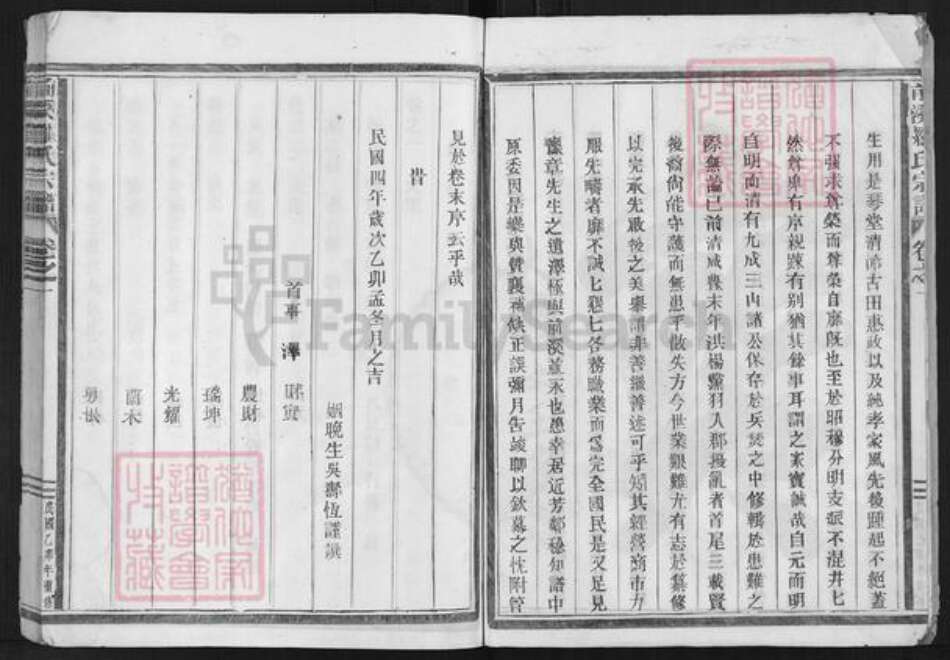 生用是琴堂清沛古田惠政以及純孝家風先後踵起不絕蓋
不彊求尊榮而尊榮自靡旣也至於昭穆分明支派不混井七
然尊卑有序親踈有別猶其餘事耳謂之家寶誠哉自元而明
自明而淸有九成三山諸公保存於兵燹之中修輯於患難之
際無論已前清咸豐末年洪楊黨羽入郡擾亂者首尾三載賢
後裔尙能守護而無患乎散失方今世業艱難尤有志於纂修
以完承先啟後之美舉謂非善繼善述可乎矧其經營商市力
服先疇者靡不誠七懇七各務職業而爲完全國民是又足見
先生之遺澤極與前溪並永也愚幸居近芳鄰稔知譜中
原委因是樂與贊襄補缺正誤彌月告竣聊以欽慕之忱附贅
見於卷末序云乎哉
旹
民國四年歲次乙卯孟冬月之吉
姻晚生吳 恆謹譔
首事 澤
財寶
農財
瑤坤
光耀
前溪 氏宗譜 卷之一
民國乙卯年重修
FamilySearch